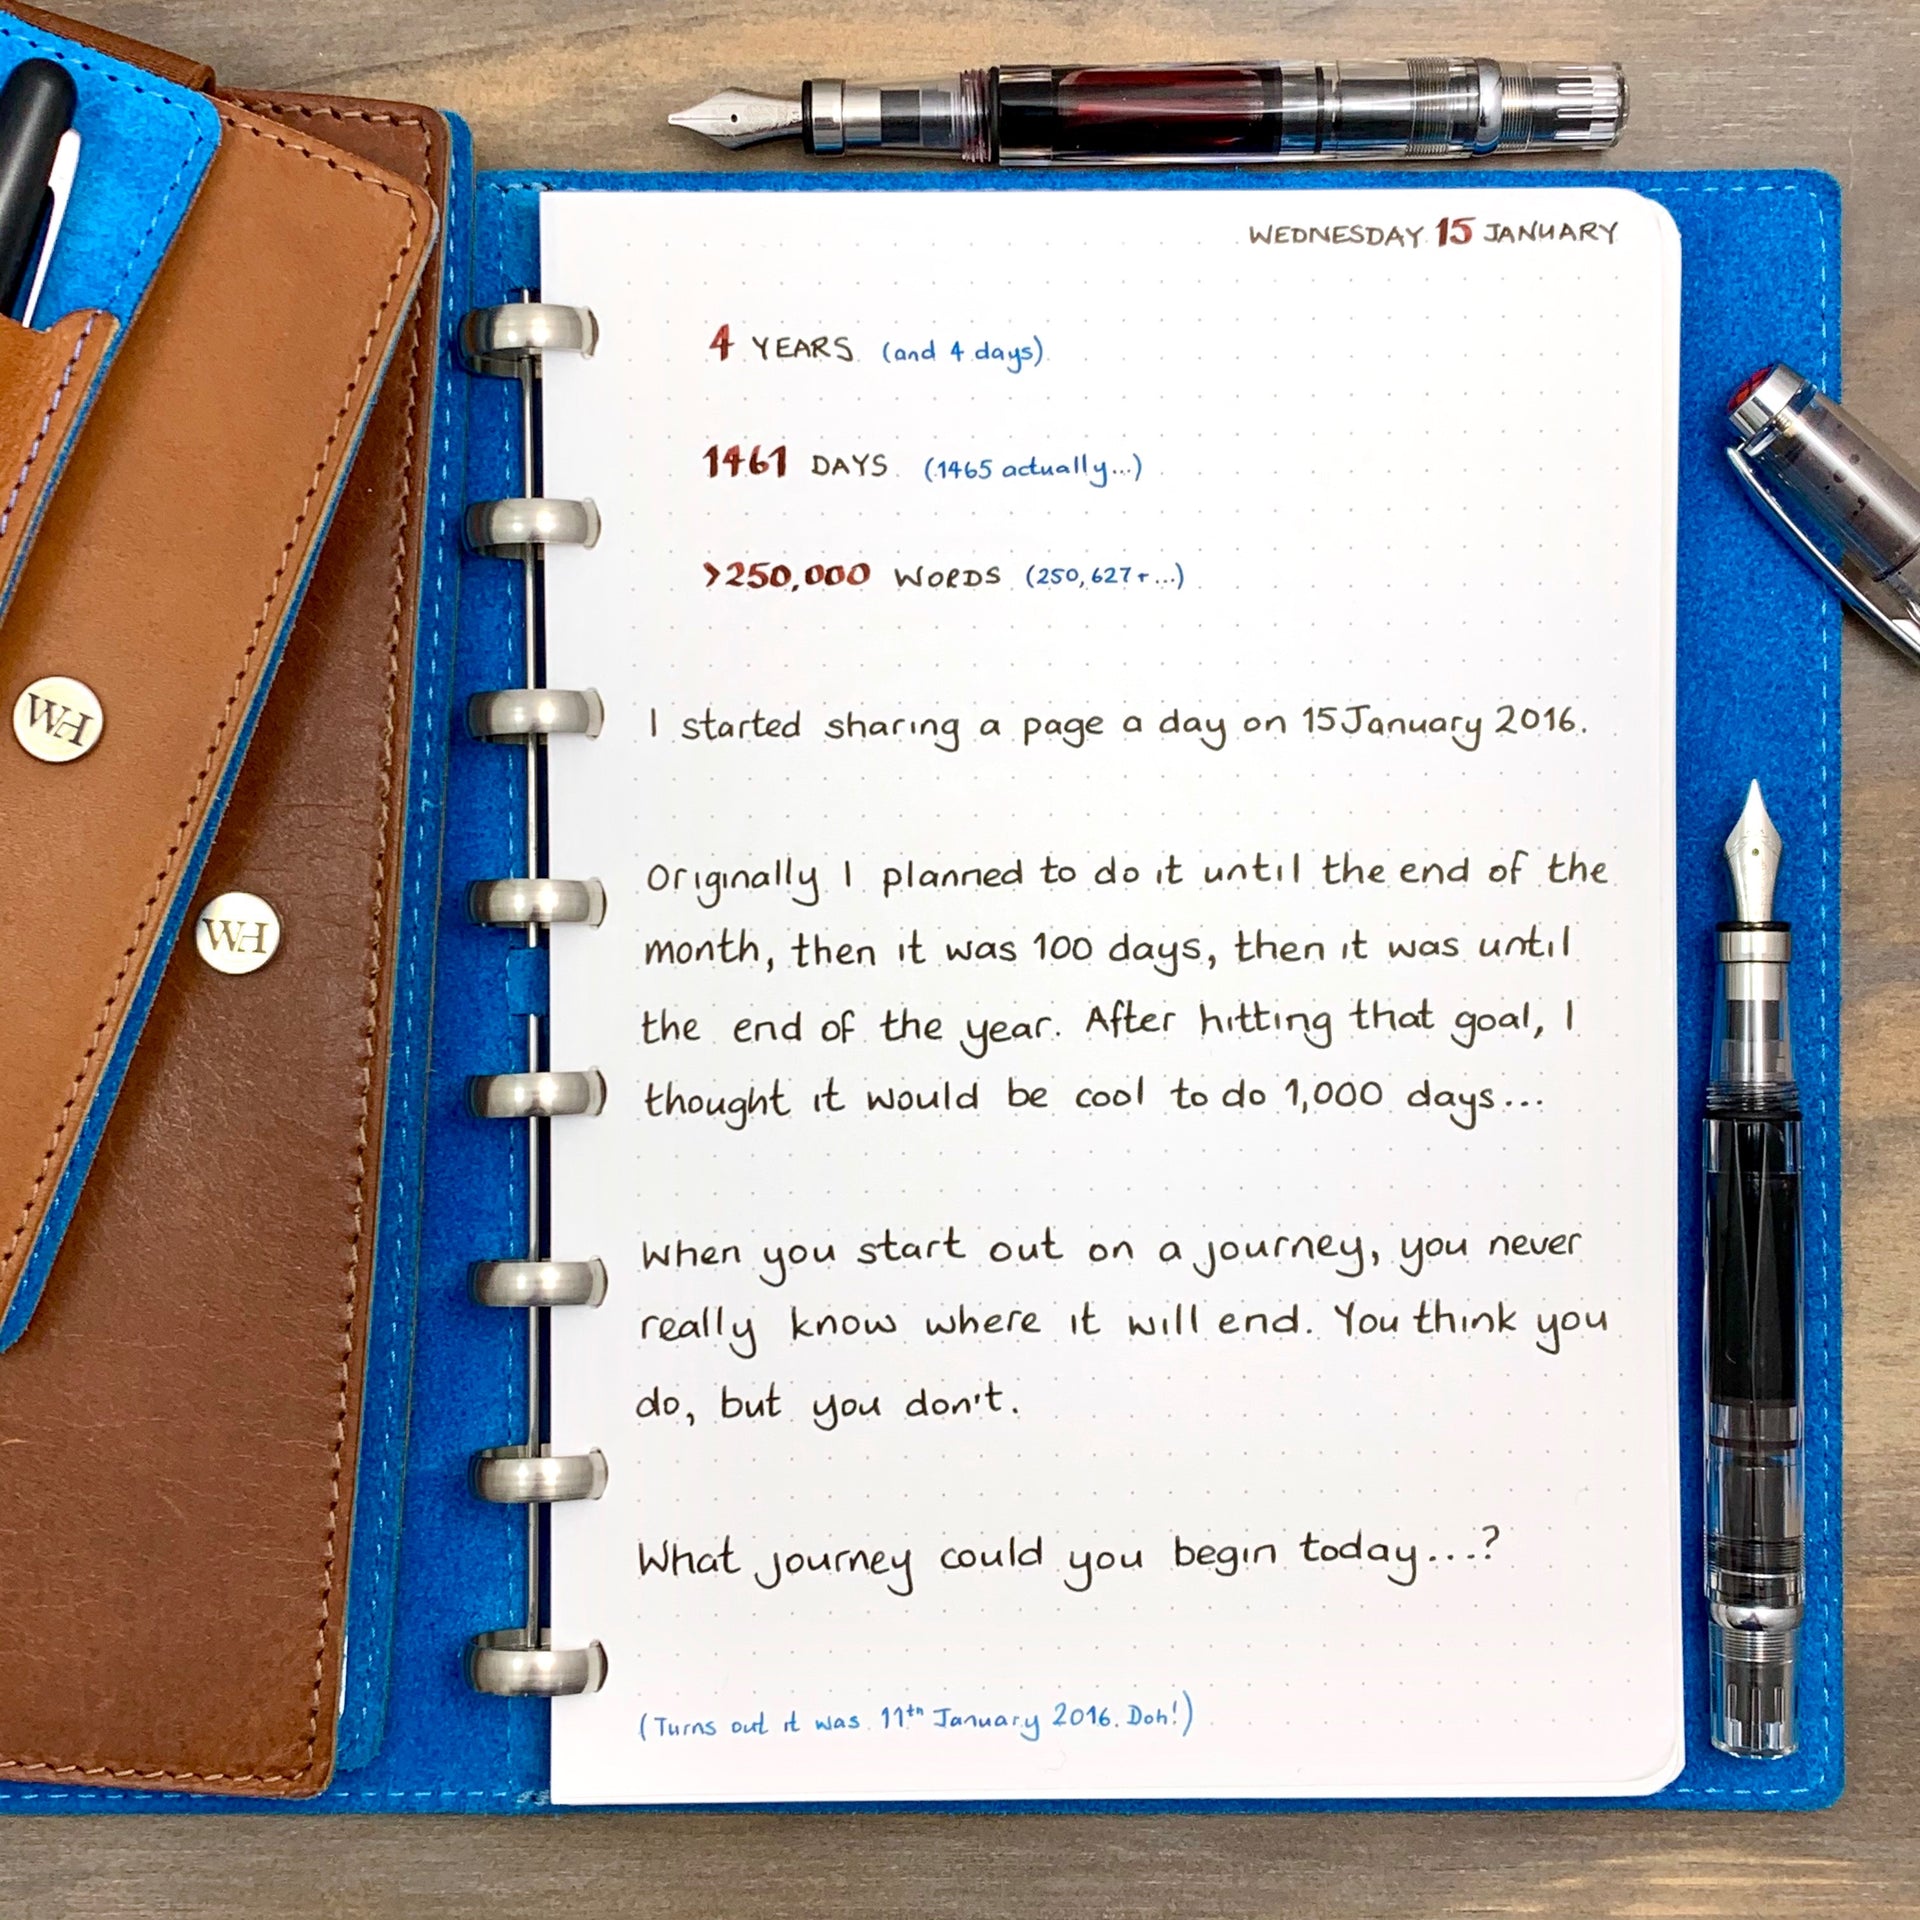 WEDNESDAY 15 JANUARY
4 YEARS (and 4 days)
1461 DAYS (1465 actually...)
>250,000 WORDS (250,627+...)
I started sharing a page a day on 15 January 2016.
Originally I planned to do it until the end of the
month, then it was 100 days, then it was until
the end of the year. After hitting that goal, I
thought it would be cool to do 1,000 days...
When you start out on a journey, you never
really know where it will end. You think you
do, but you don't.
What journey could you begin today...?
(Turns out it was 11th January 2016. Doh!)
WH
WH